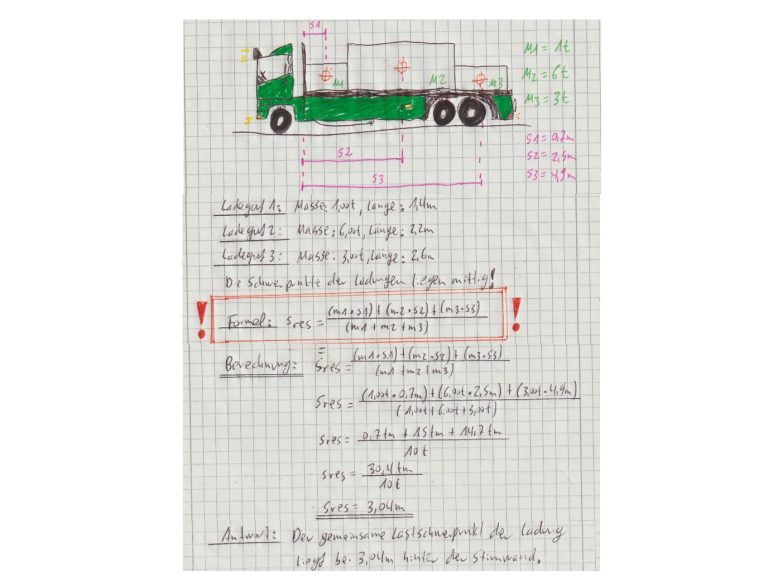 S1
M1 = 1t
M1
M2
M3
M2 = 6t
M3 = 3t
S1 = 0,7m
S2
S2 = 2,5m
S3
S3 = 4,9m
Ladegut 1: Masse: 1,00t, Länge: 1,4m
Ladegut 2: Masse: 6,00t, Länge: 2,2m
Ladegut 3: Masse: 3,00t, Länge: 2,6m
Die Schwerpunkte der Ladungen liegen mittig!
! Formel: sres = (m1•s1) + (m2•s2) + (m3•s3) / (m1 + m2 + m3) !
Berechnung: sres = (m1•s1) + (m2•s2) + (m3•s3) / (m1 + m2 + m3)
sres = (1,00t•0,7m) + (6,00t•2,5m) + (3,00t•4,9m) / (1,00t + 6,00t + 3,00t)
sres = 0,7tm + 15tm + 14,7tm / 10t
sres = 30,4tm / 10t
sres = 3,04m
Antwort: Der gemeinsame Lastschwerpunkt der Ladung
liegt bei 3,04m hinter der Stirnwand.